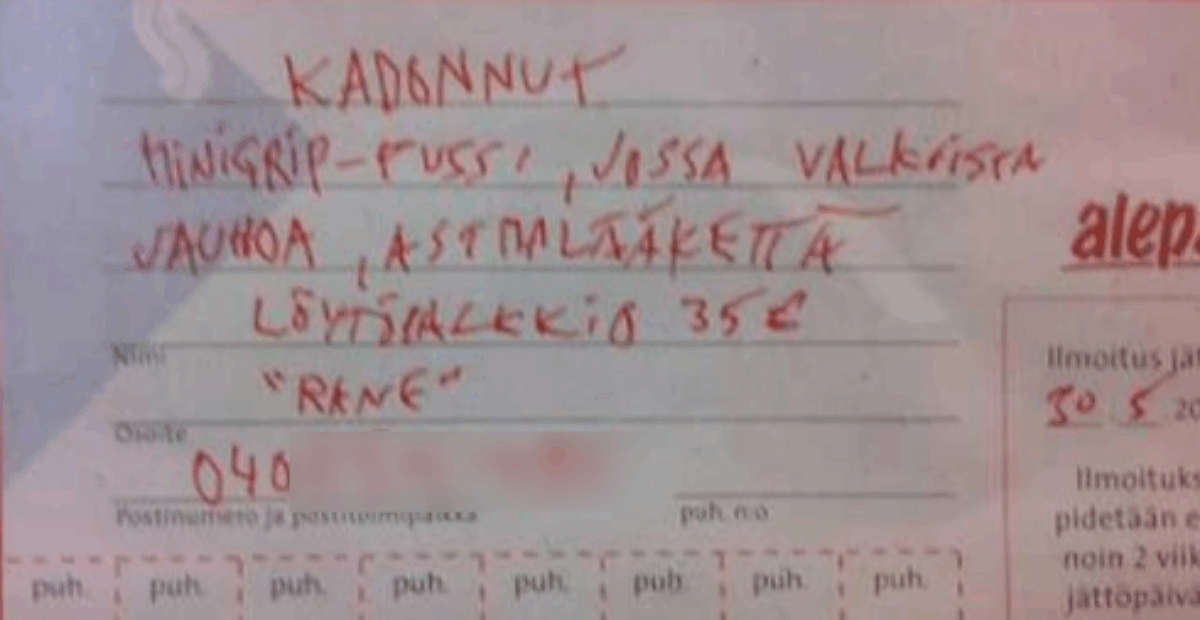 KADONNUT
MINIGRIP-PUSSI, JOSSA VALKOISTA
JAUHOA, ASTMALÄÄKETTÄ
LÖYTÖPALKKIO 35 €
Nimi
"RANE"
Osoite
040
Postinumero ja postitoimipaikka
puh. n:o
puh. puh. puh. puh. puh. puh. puh. puh.
alepa
Ilmoitus jät
30 5 20
Ilmoituks
pidetään e
noin 2 viik
jättöpäivä